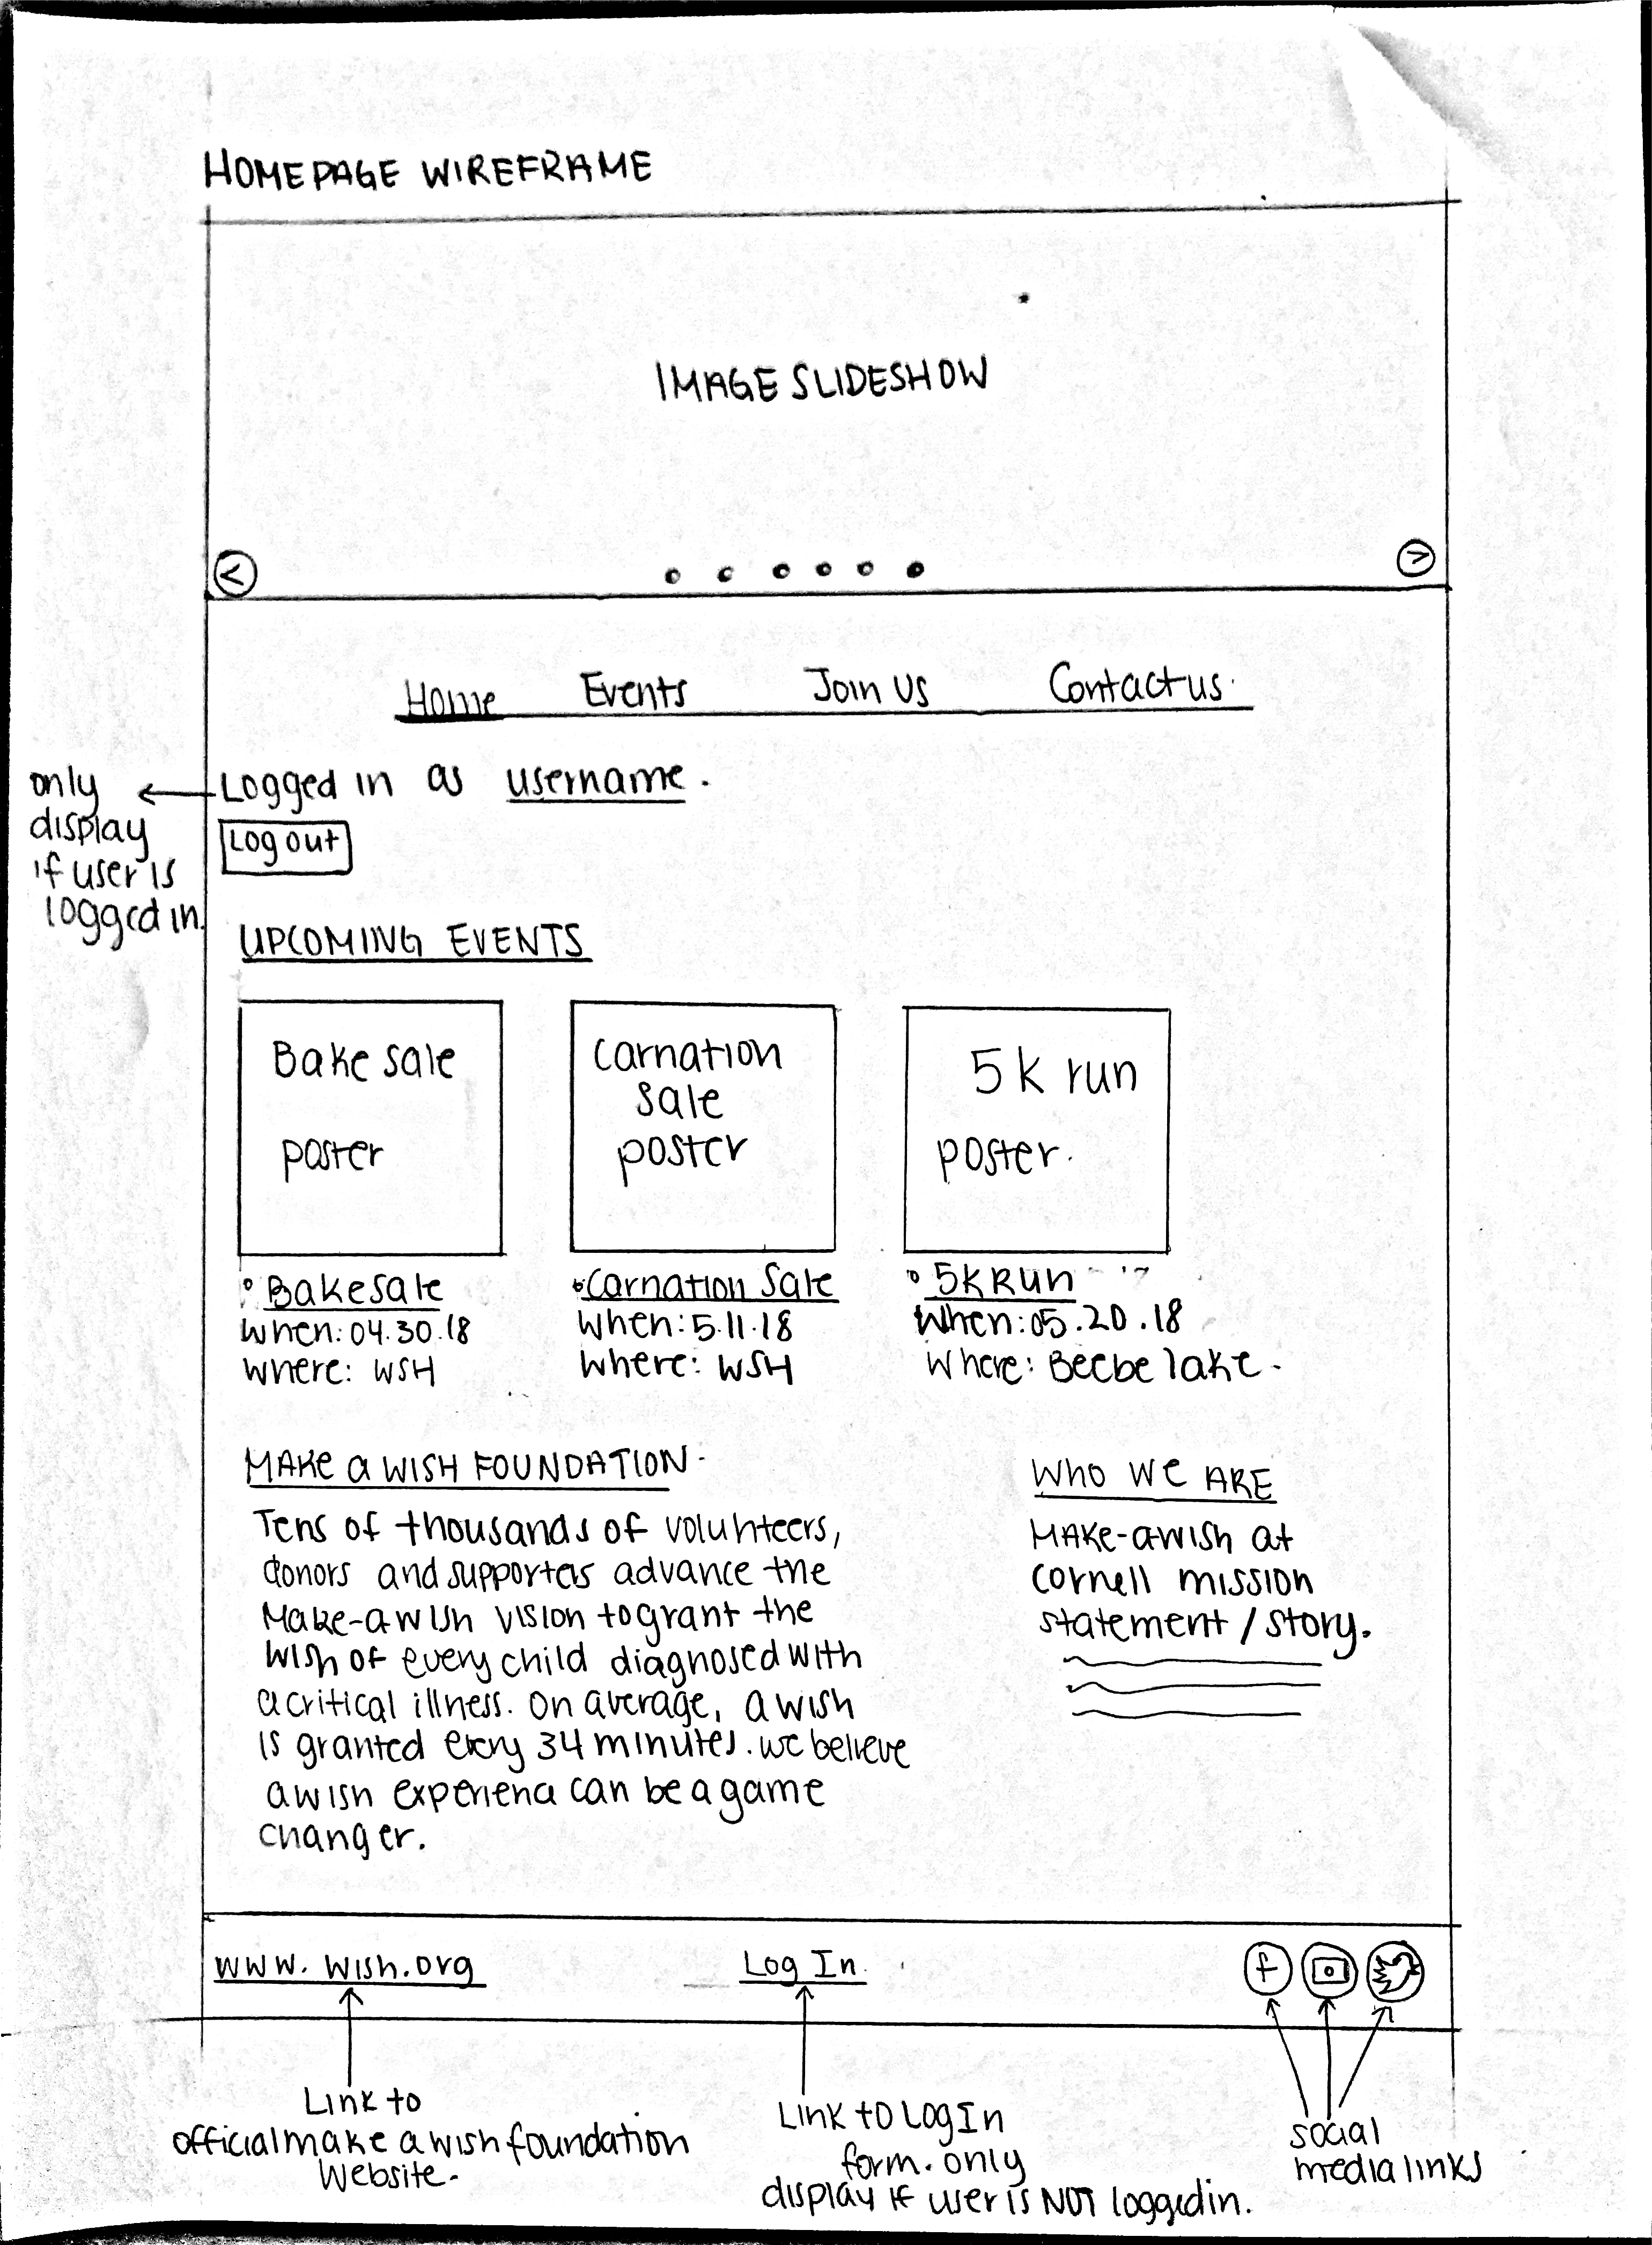 HOMEPAGE WIREFRAME
IMAGE SLIDESHOW
<
>
Home Events Join Us Contact us
only
display
if user is
logged in.
Logged in as username.
Log out
UPCOMING EVENTS
Bake sale
poster
Carnation
Sale
poster
5k run
poster.
Bake sale
When: 04.30.18
Where: WSH
Carnation Sale
When: 5.11.18
Where: WSH
5K Run
When: 05.20.18
Where: Beebe lake.
MAKE a WISH FOUNDATION
Tens of thousands of volunteers,
donors and supporters advance the
Make-a wish vision to grant the
wish of every child diagnosed with
a critical illness. On average, a wish
is granted every 34 minutes. we believe
a wish experience can be a game
changer.
WHO WE ARE
MAKE-a wish at
cornell mission
statement / story.
www.wish.org
Log In
f
Link to
official make a wish foundation
website.
Link to Log In
form. only
display if user is NOT logged in.
social
media links